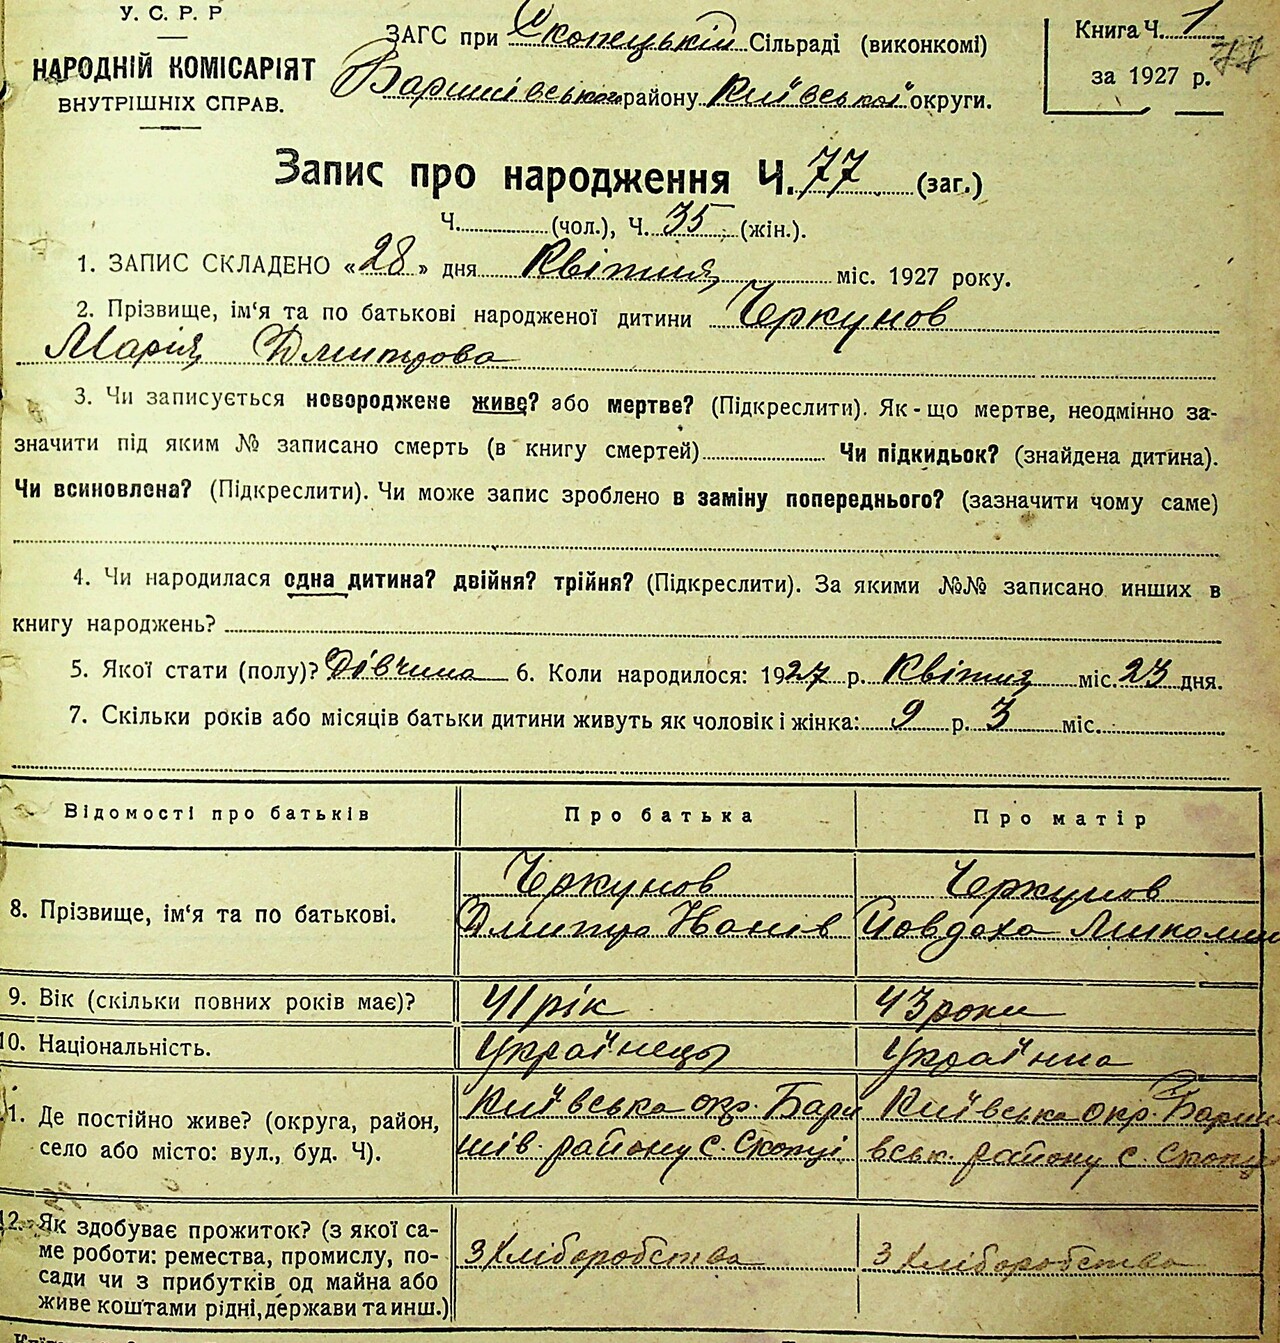 У.С.Р.Р
НАРОДНІЙ КОМІСАРІЯТ
ВНУТРІШНІХ СПРАВ.
ЗАГС при Скопецькій Сільраді (виконкомі)
Баришівського району Київської округи.
Книга Ч. 1
77
за 1927 р.
Запис про народження Ч. 77 (заг.)
Ч. (чол.), Ч. 35 (жін.).
1. ЗАПИС СКЛАДЕНО «28» дня Квітня міс. 1927 року.
2. Прізвище, ім'я та по батькові народженої дитини Черкунов
Марія Дмитрова
3. Чи записується новороджене живе? або мертве? (Підкреслити). Як-що мертве, неодмінно за-
значити під яким № записано смерть (в книгу смертей) Чи підкидьок? (знайдена дитина).
Чи всиновлена? (Підкреслити). Чи може запис зроблено в заміну попереднього? (зазначити чому саме)
4. Чи народилася одна дитина? двійня? трійня? (Підкреслити). За якими №№ записано инших в
книгу народжень?
5. Якої стати (полу)? Дівчина 6. Коли народилося: 1927 р. Квітня міс. 23 дня.
7. Скільки років або місяців батьки дитини живуть як чоловік і жінка: 9 р. 3 міс.
Відомості про батьків Про батька Про матір
8. Прізвище, ім'я та по батькові. Черкунов Черкунов
Дмитро Йовдоха
9. Вік (скільки повних років має)? 41 рік 43 роки
10. Національність. Українець Українка
11. Де постійно живе? (округа, район, Київська окр. Бари Київська окр. Бариші
село або місто: вул., буд. Ч). шів. району с. Скопці вськ. району с. Скопці
12. Як здобуває прожиток? (з якої са-
ме роботи: ремества, промислу, по- З хліборобства З хліборобства
сади чи з прибутків од майна або
живе коштами рідні, держави та инш.)